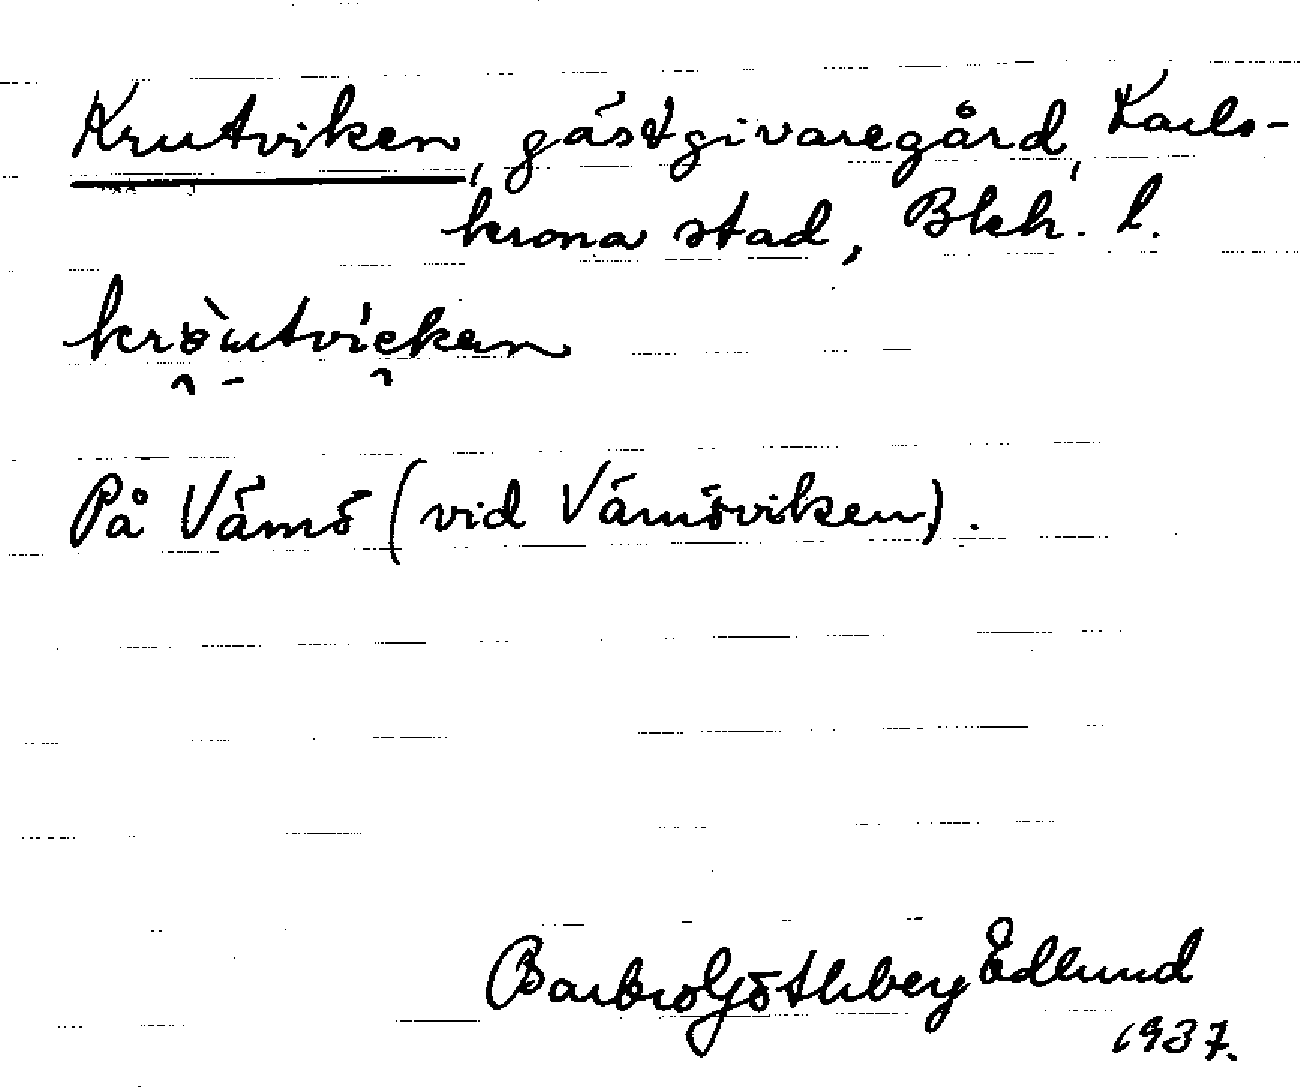 Krutviken, gästgivaregård, Karls-
krona stad, Blek. l.
krö̀utvíekan
På Vämö (vid Vämöviken).
Barbro Göthberg Edlund
1937.